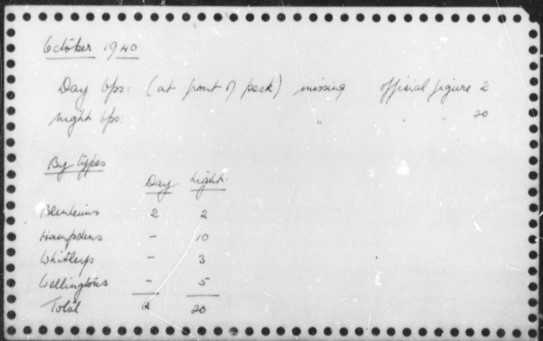 October 1940
Day Ops: (at front of pack) missing official figure 2
Night Ops: " " " 20
By types
Day Night
Blenheims 2 2
Hampdens - 10
Whitleys - 3
Wellingtons - 5
Total 2 20